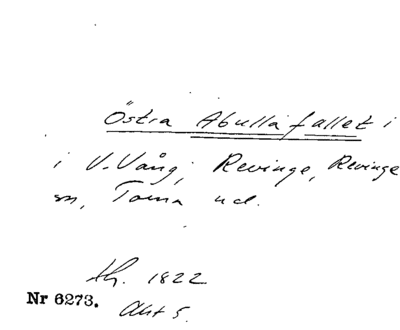 Östra Abullafallet i
i V. Vång, Revinge, Revinge
sn, Torna hd.
Ah. 1822
Nr 6273.
Akt 5